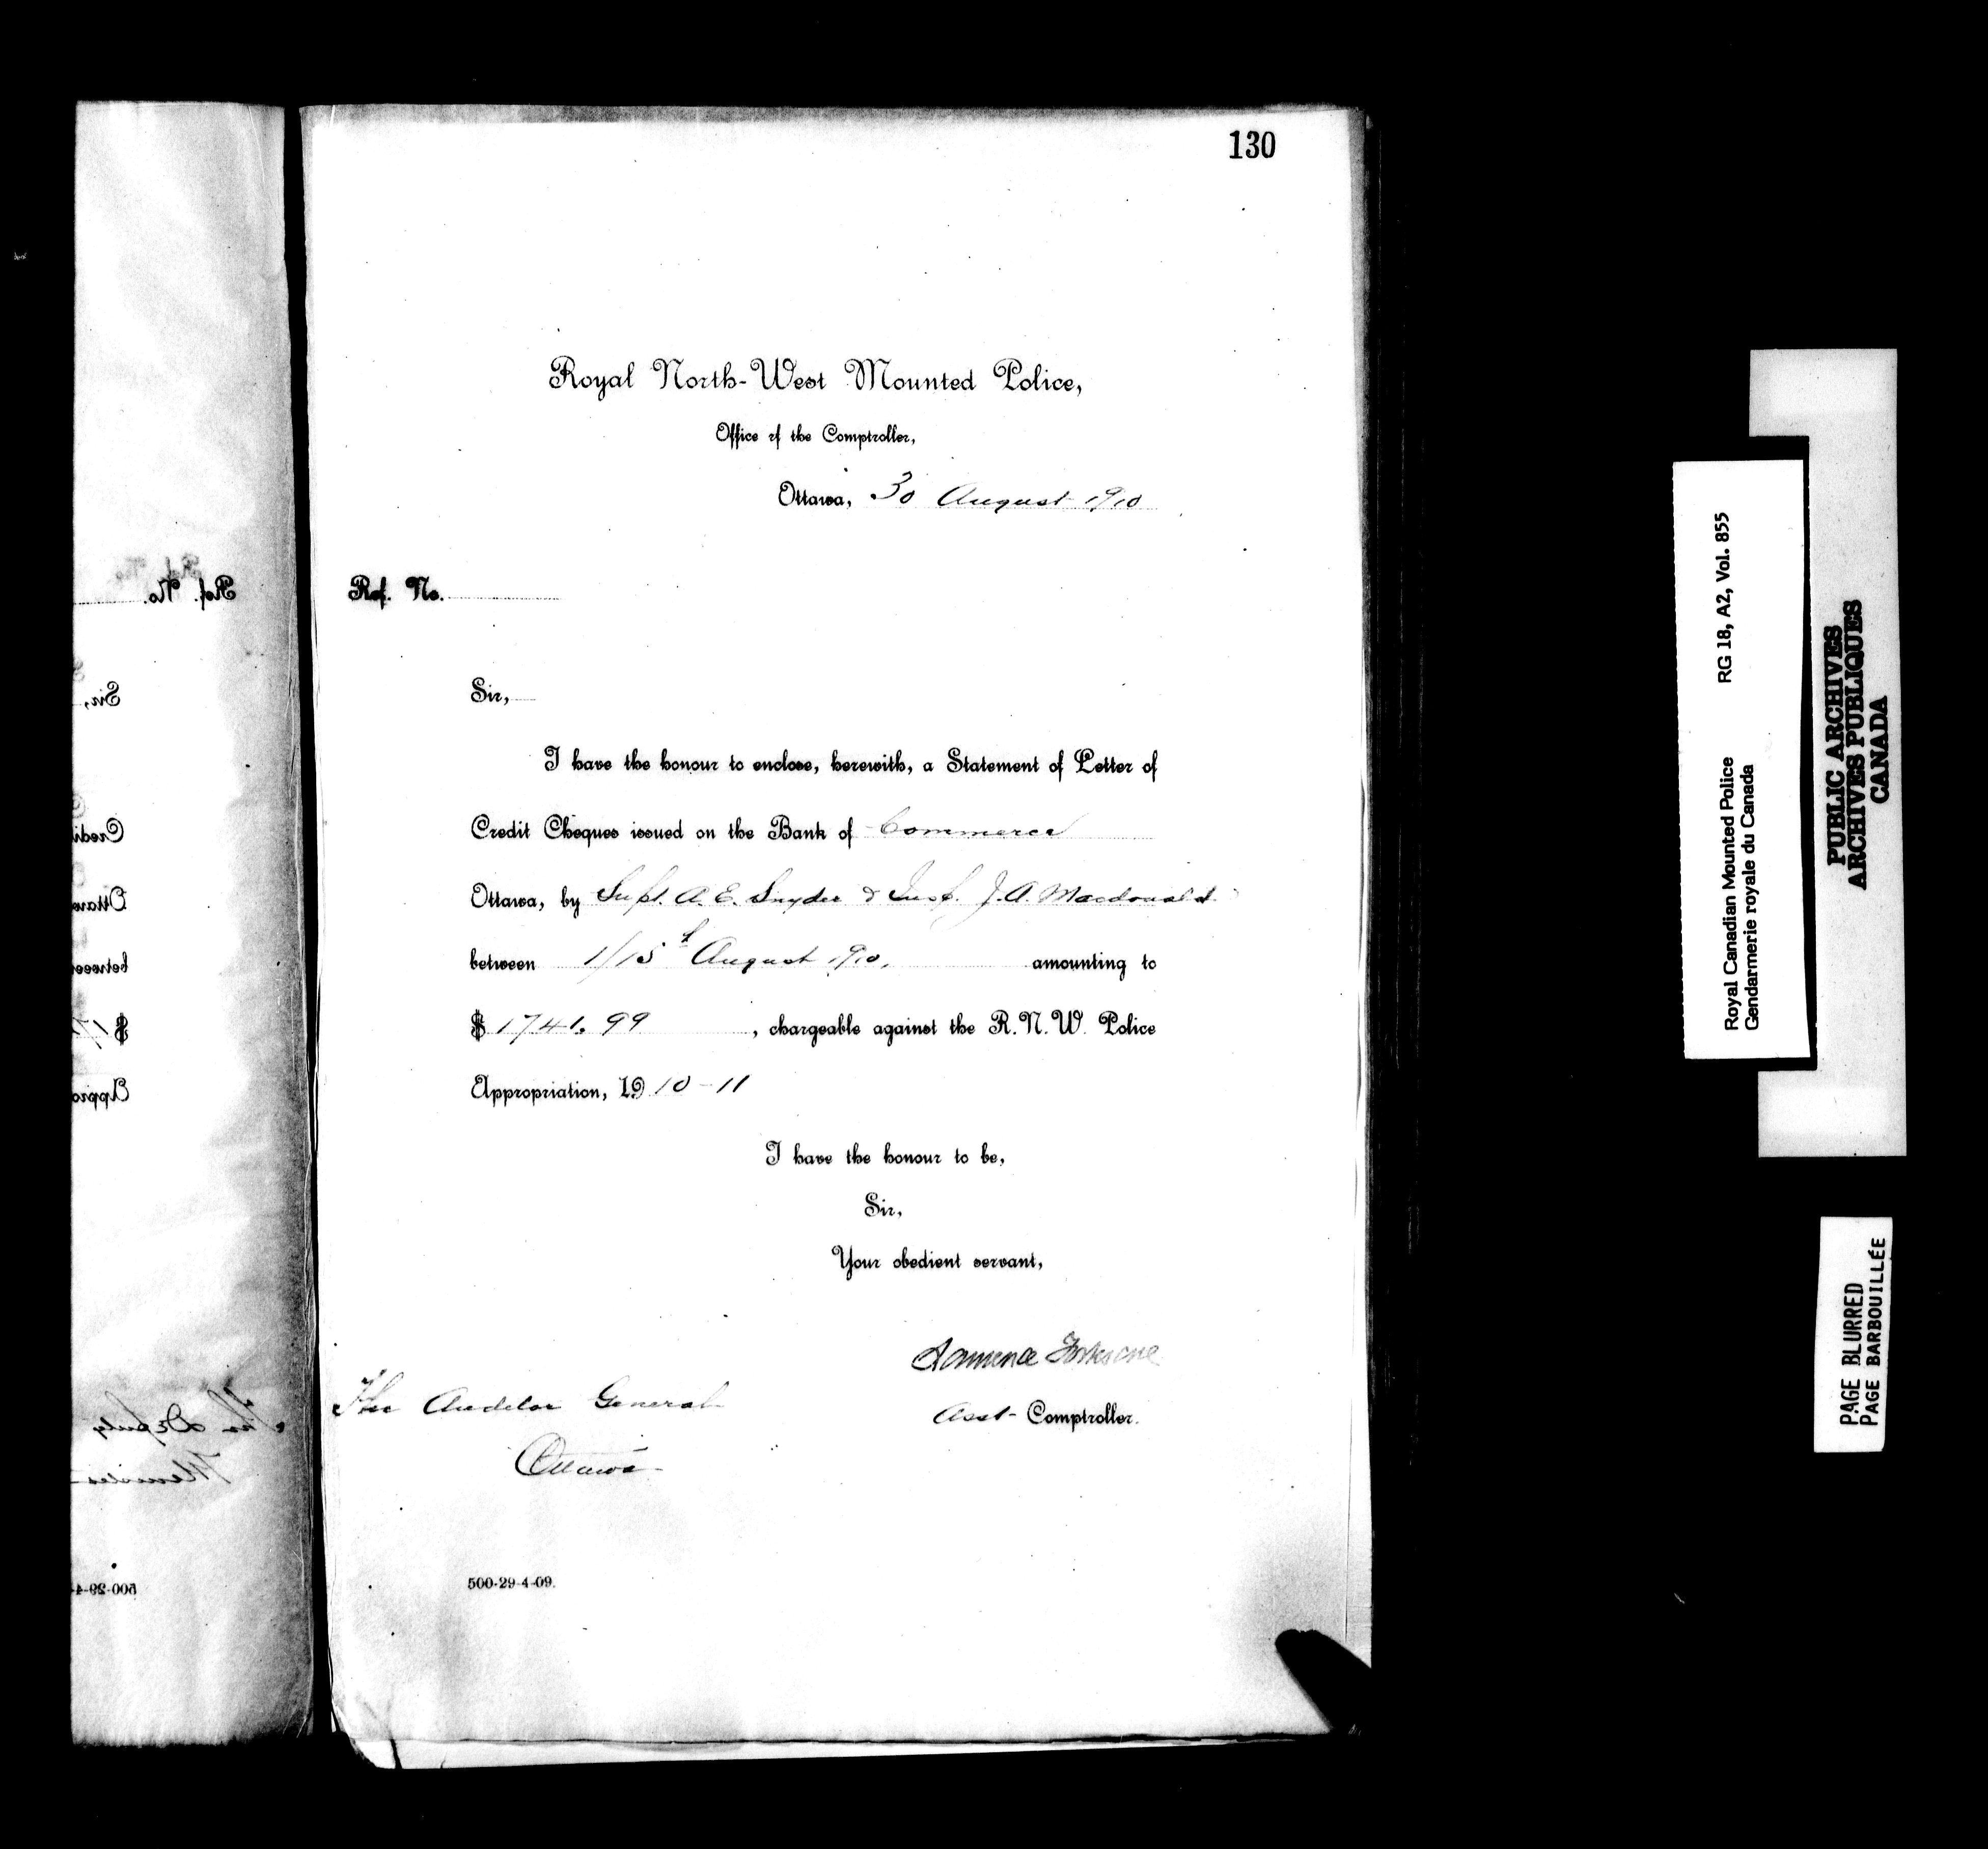 130
Royal North-West Mounted Police,
Office of the Comptroller,
Ottawa, 30 August 1910
Ref. No.
Sir,
I have the honour to enclose, herewith, a Statement of Letter of
Credit Cheques issued on the Bank of Commerce
Ottawa, by Supt. A. E. Snyder & Insp. J. A. Macdonald
between 1/15th August 1910, amounting to
$ 1741.99, chargeable against the R. N. W. Police
Appropriation, 1910-11
I have the honour to be,
Sir,
Your obedient servant,
Laurence Fortescue
Asst- Comptroller.
The Auditor General
Ottawa
500-29-4-09.
Ref. No.
Sir,
Credit
Ottawa
between
$ 17
Appro
The Deputy
500-29-4-
Royal Canadian Mounted Police RG 18, A2, Vol. 855
Gendarmerie royale du Canada
PUBLIC ARCHIVES
ARCHIVES PUBLIQUES
CANADA
PAGE BLURRED
PAGE BARBOUILLÉE